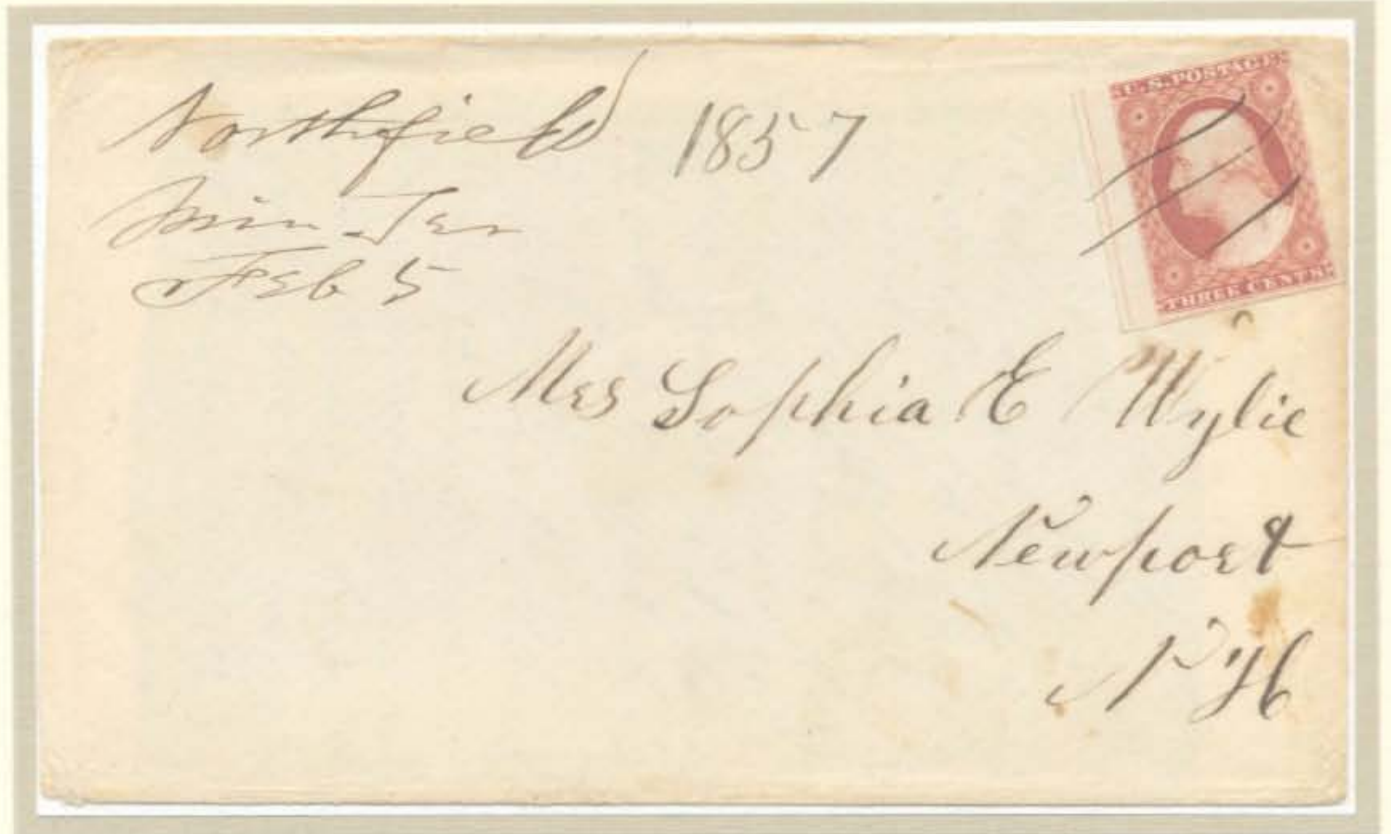 Northfield 1857
Min Ter
Feb 5
U.S. POSTAGE
THREE CENTS
Mrs Sophia E Wylie
Newport
N H